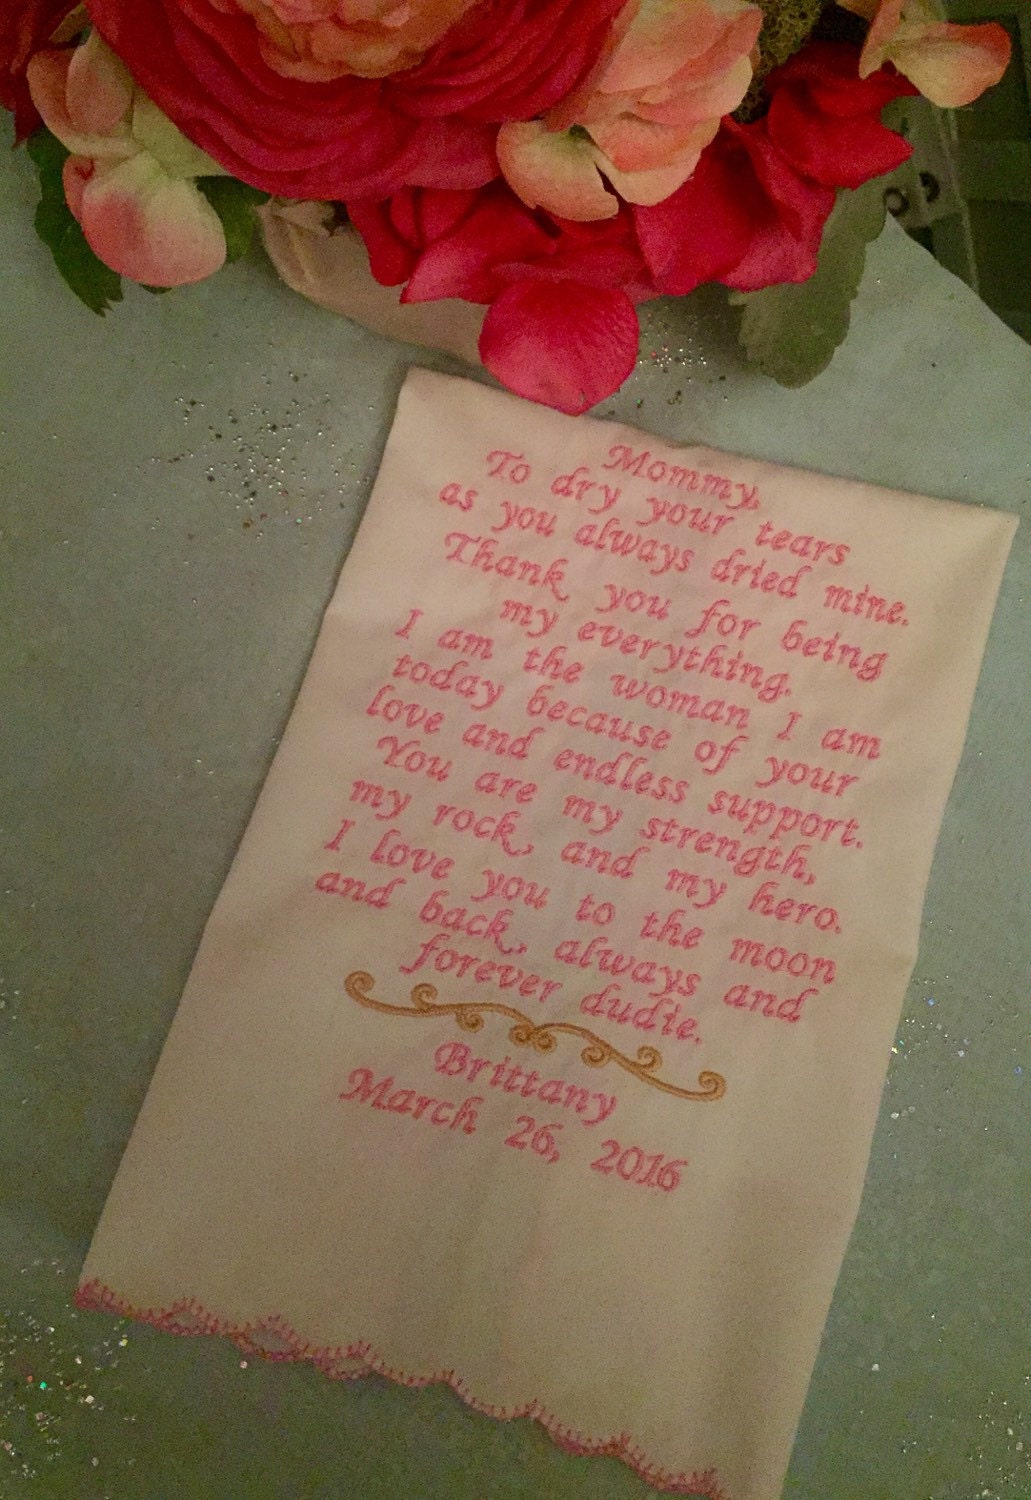 Mommy,
To dry your tears
as you always dried mine.
Thank you for being
my everything.
I am the woman I am
today because of your
love and endless support.
You are my strength,
my rock, and my hero.
I love you to the moon
and back, always and
forever dudie.
Brittany
March 26, 2016